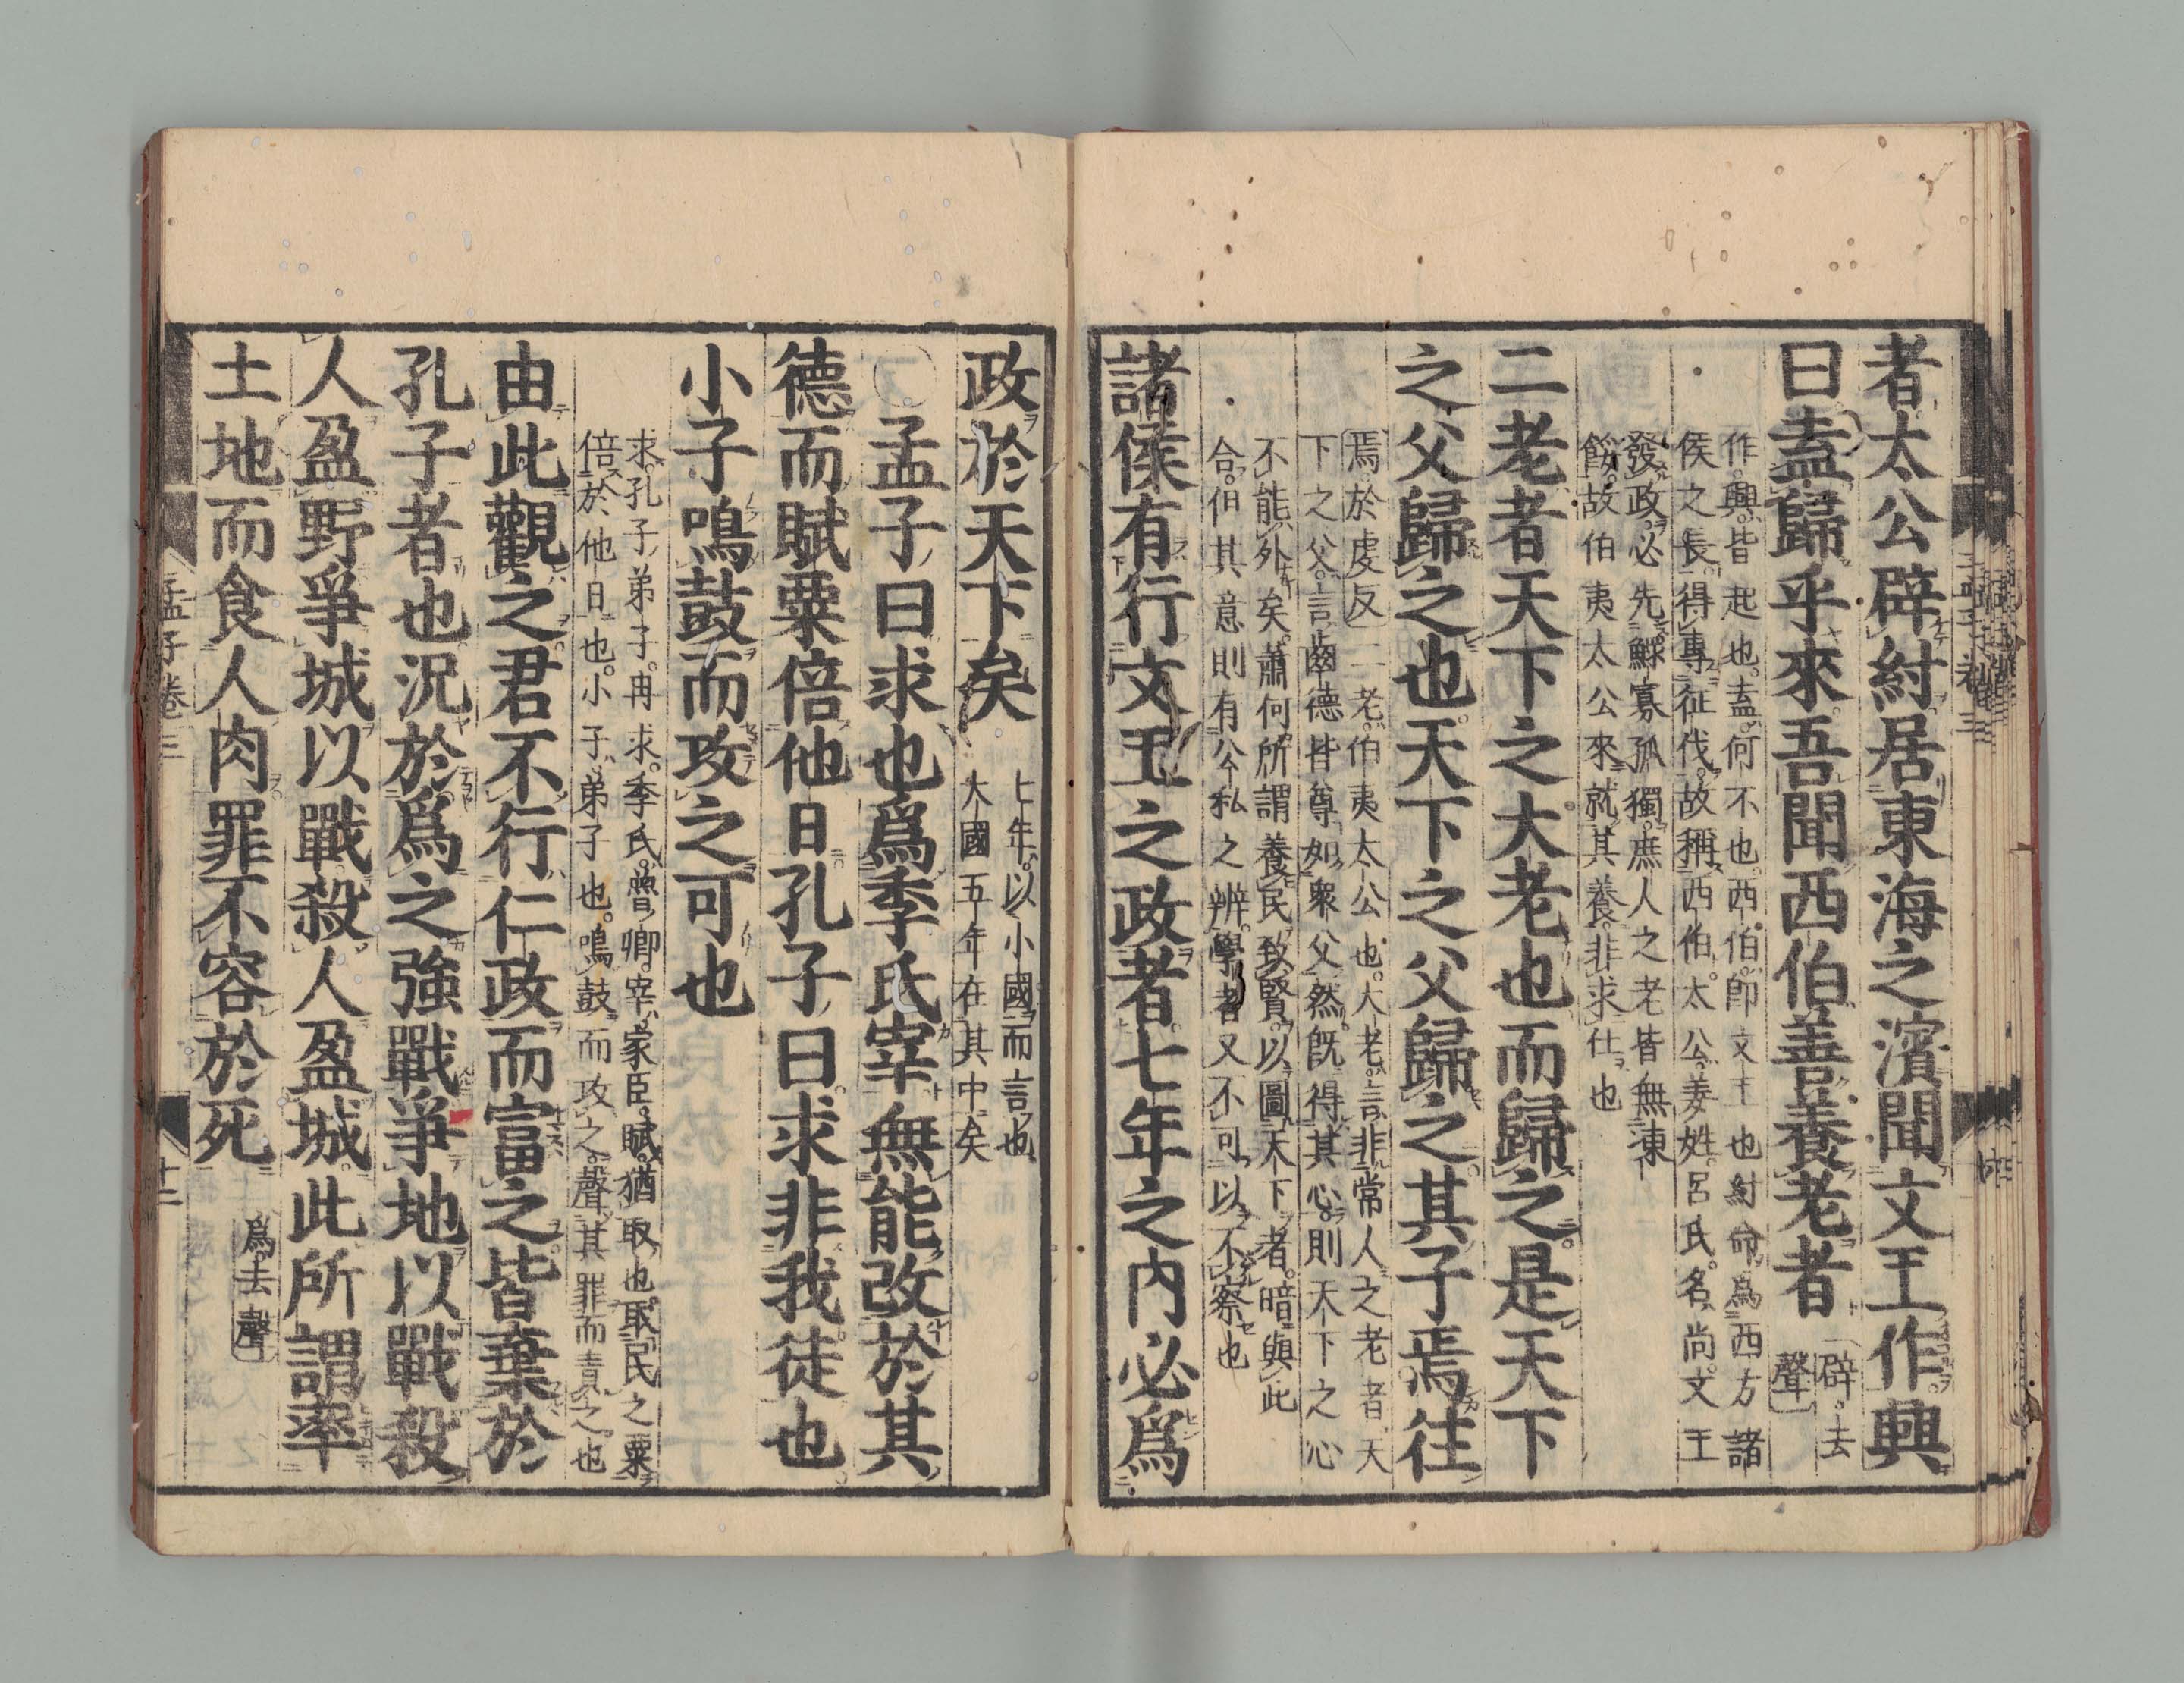 者太公辟紂居東海之濱聞文王作興
曰盍歸乎來吾聞西伯善養老者
辟去
聲
作興皆起也盍何不也西伯卽文王也紂命爲西方諸
侯之長得專征伐故稱西伯太公姜姓呂氏名尚文王
發政必先鰥寡孤獨庶人之老皆無凍
餒故伯夷太公來就其養非求仕也
二老者天下之大老也而歸之是天下
之父歸之也天下之父歸之其子焉往
焉於虔反二老伯夷太公也大老言非常人之老者天
下之父言齒德皆尊如衆父然旣得其心則天下之心
不能外矣蕭何所謂養民致賢以圖天下者暗與此
合但其意則有公私之辨學者又不可以不察也
諸侯有行文王之政者七年之內必爲
政於天下矣
七年以小國而言也
大國五年在其中矣
〇孟子曰求也爲季氏宰無能改於其
德而賦粟倍他日孔子曰求非我徒也
小子鳴鼓而攻之可也
求孔子弟子冉求季氏魯卿宰家臣賦猶取也取民之粟
倍於他日也小子弟子也鳴鼓而攻之聲其罪而責之也
由此觀之君不行仁政而富之皆棄於
孔子者也況於爲之強戰爭地以戰殺
人盈野爭城以戰殺人盈城此所謂率
土地而食人肉罪不容於死
爲去聲
孟子卷三
十二